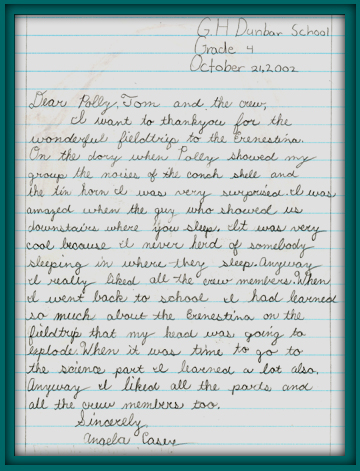 G.H Dunbar School
Grade 4
October 21,2002
Dear Polly, Tom and the crew,
I want to thankyou for the
wonderful fieldtrip to the Erenestina.
On the dory when Polly showed my
group the noises of the conch shell and
the tin horn I was very surprised. I was
amazed when the guy who showed us
downstairs where you sleep. It was very
cool because I never herd of somebody
sleeping in where they sleep. Anyway
I really liked all the crew members. When
I went back to school I had learned
so much about the Erenestina on the
fieldtrip that my head was going to
explode. When it was time to go to
the science part I learned a lot also.
Anyway I liked all the parts and
all the crew members too.
Sincerely,